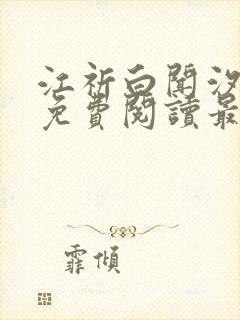 江祈白聞汐
免費閱讀最
霏傾